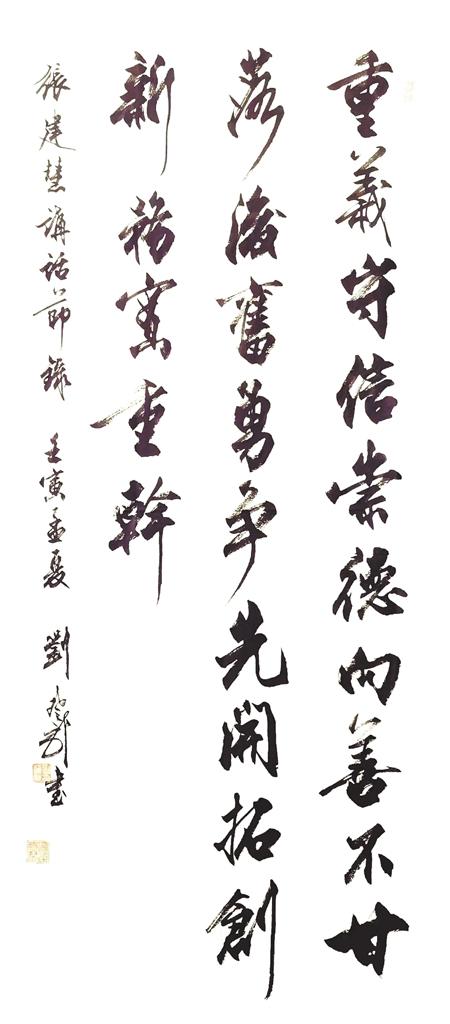 重義守信崇德向善不甘
落後奮勇争先開拓創
新務實重幹
張建慧講話節錄 壬寅孟夏 劉書